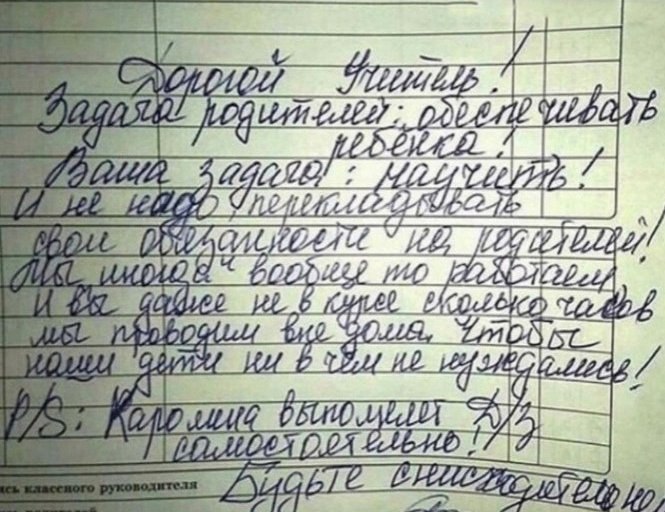 Дорогой Учитель!
Задача родителей: обеспечивать
ребёнка!
Ваша задача: научить!
И не надо перекладывать
свои обязанности на родителей!
Мы иногда вообще то работаем
и вы даже не в курсе сколько часов
мы проводим вне дома. Чтобы
наши дети ни в чём не нуждались!
P/S: Каролина выполняет Д/З
самостоятельно!
Будьте снисходительно,
ись классного руководителя